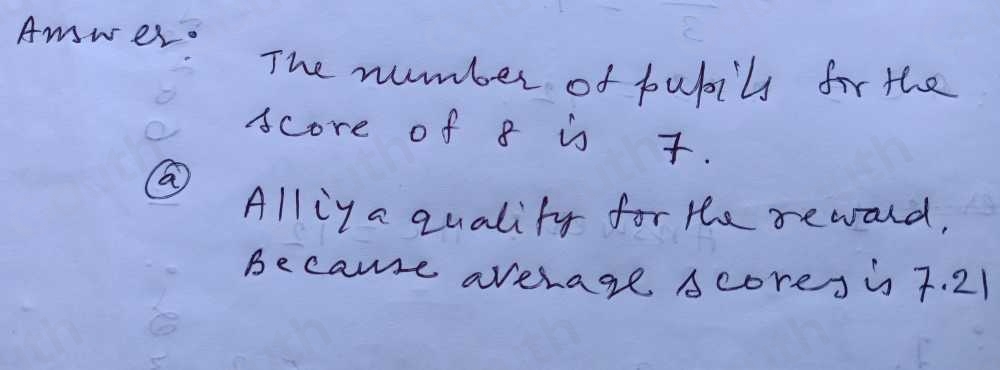 Answer:
The number of pupils for the
score of 8 is 7.
(a)
Alliya quality for the reward.
Because average scores is 7.21